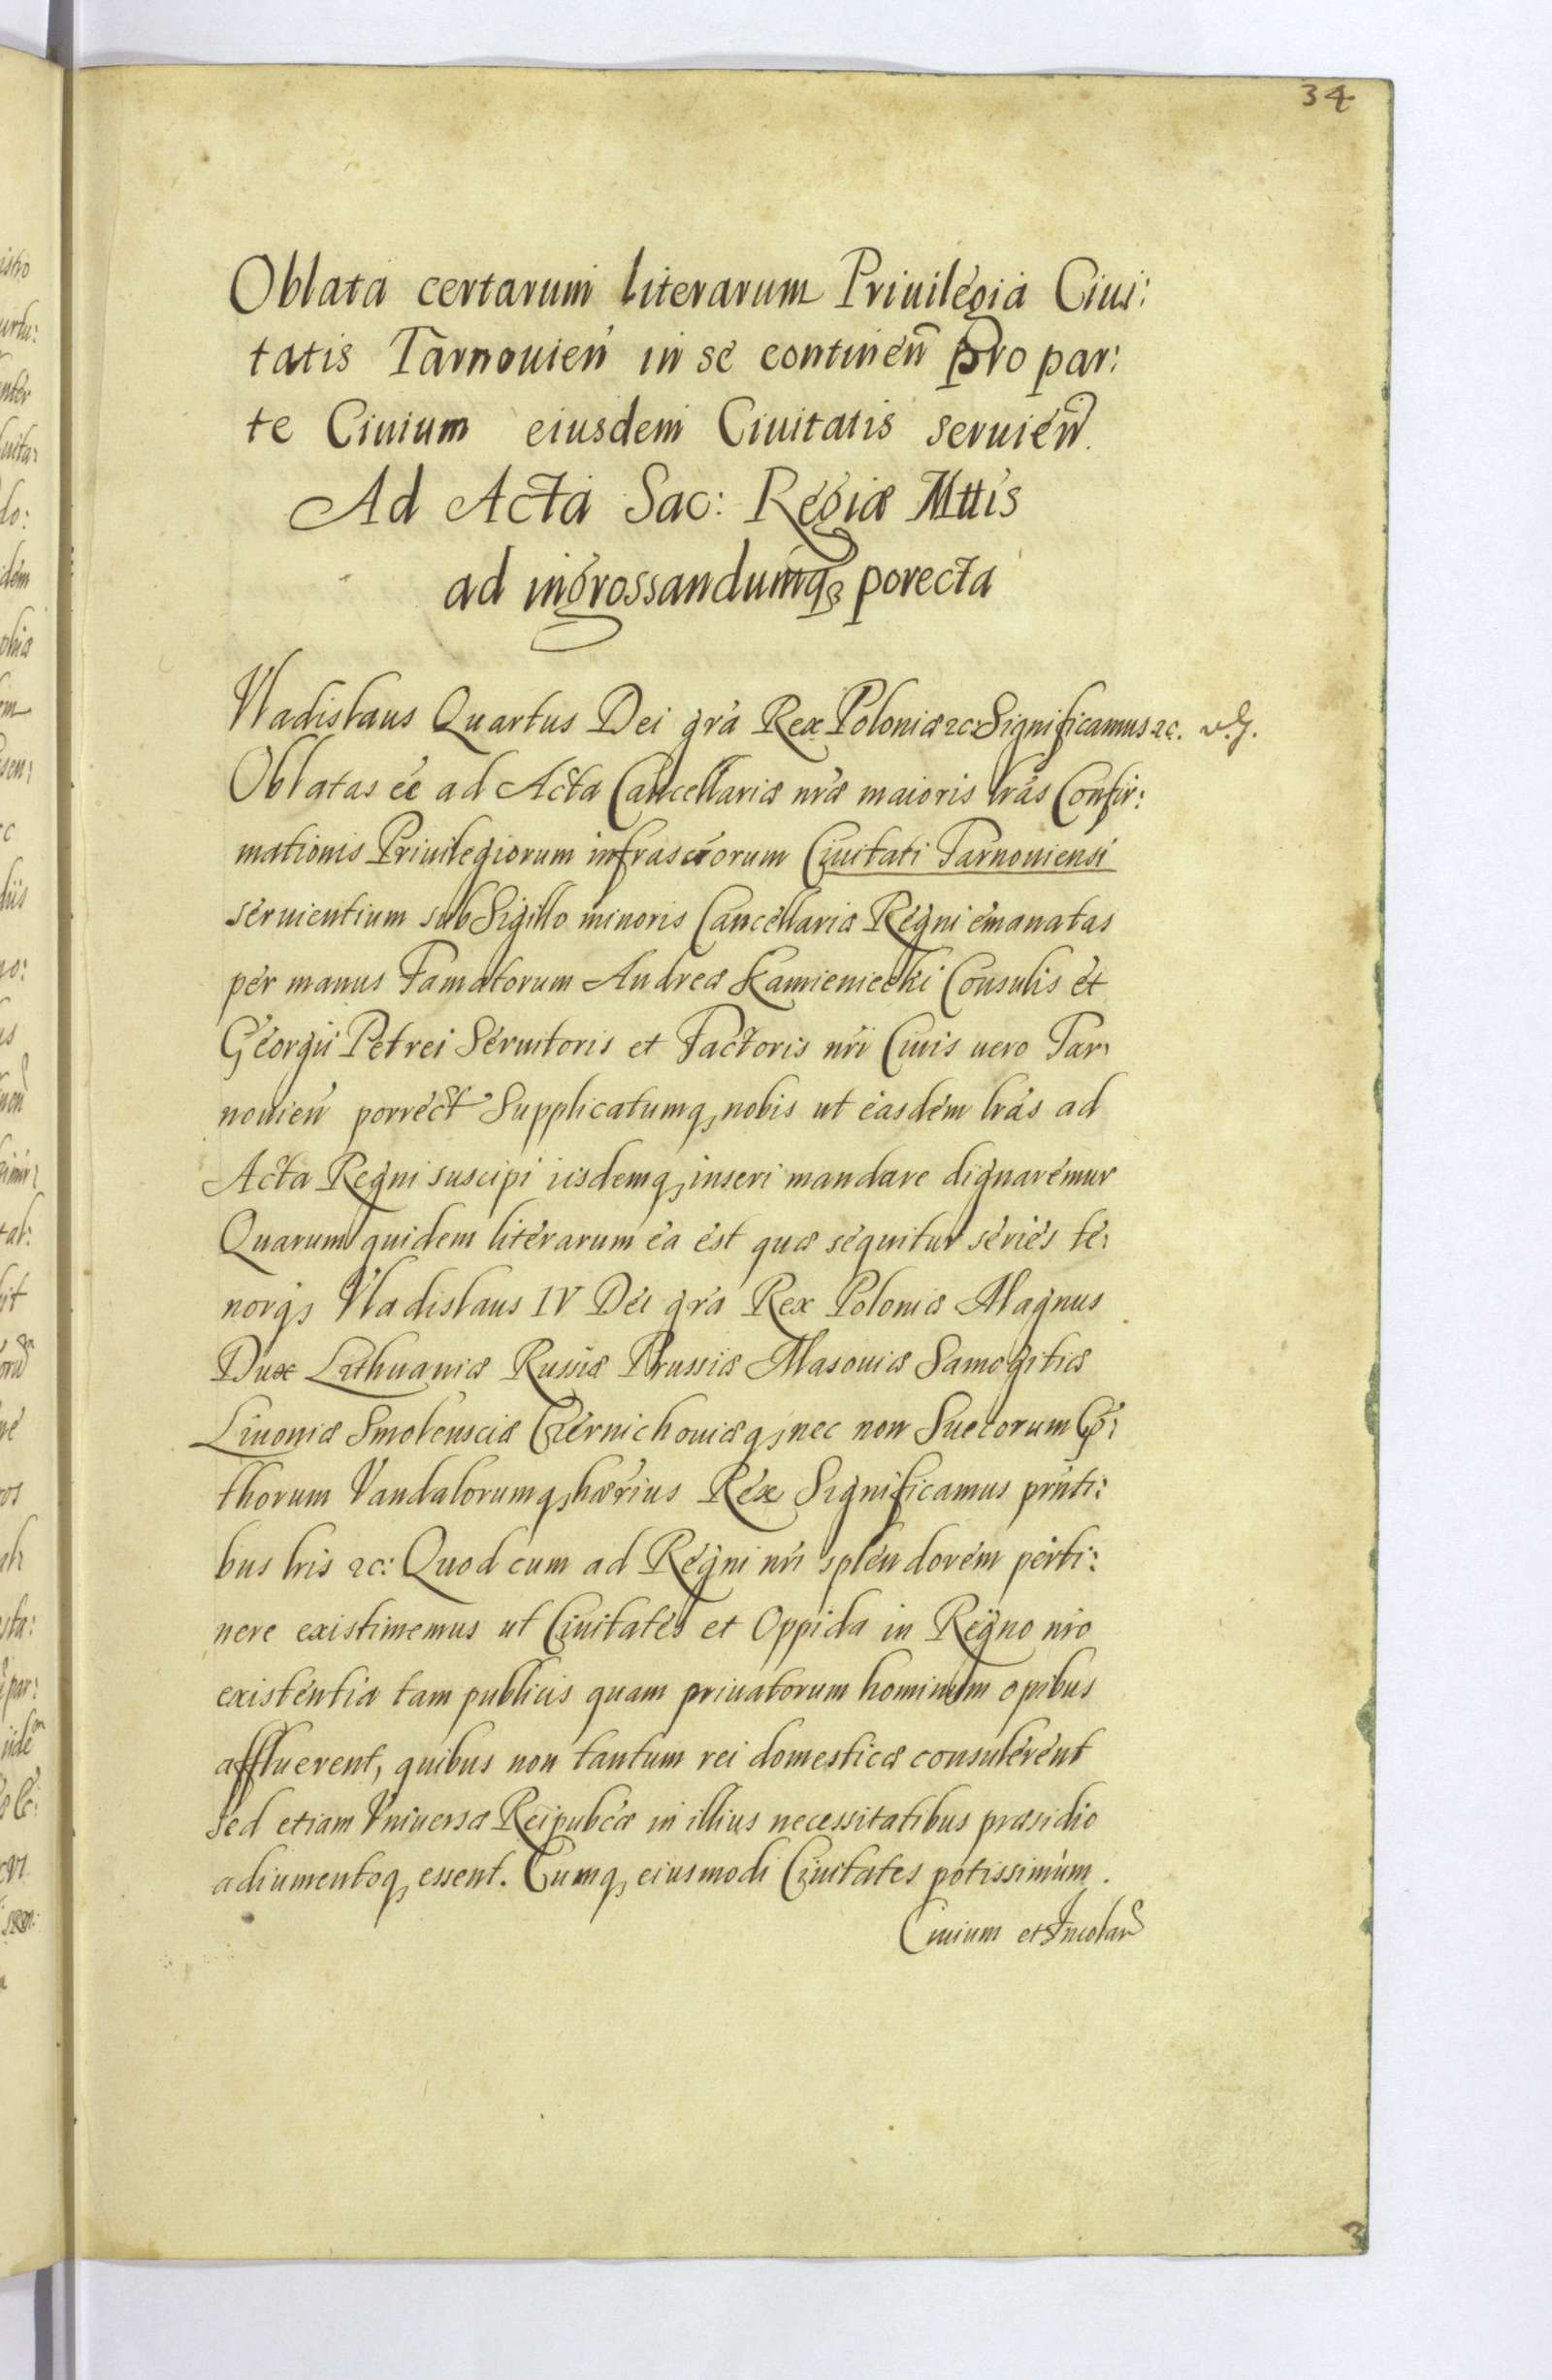 34
Oblata certarum literarum Priuilegia Ciui:
tatis Tarnouien in se continen Pro par:
te Ciuium eiusdem Ciuitatis seruien.
Ad Acta Sac: Regiæ Mttis
ad ingrossandumq; porecta
Vladislaus Quartus Dei gra Rex Poloniæ &c: Significamus &c.
Oblatas eē ad Acta Cancellariæ nræ maioris lras Confir:
mationis Priuilegiorum infrascrorum Ciuitati Tarnouiensi
seruientium sub Sigillo minoris Cancellariæ Regni emanatas
per manus Famatorum Andreæ Kamieniecki Consulis et
Georgii Petrei Seruitoris et Factoris nri Ciuis uero Tar:
nouien porrect Supplicatumq; nobis ut easdem lras ad
Acta Regni suscipi iisdemq; inseri mandare dignaremur
Quarum quidem literarum ea est quæ sequitur series te:
norq; Vladislaus IV Dei gra Rex Poloniæ Magnus
Dux Lithuaniæ Russiæ Prussiæ Masouiæ Samogitiæ
Liuoniæ Smolensciæ Czernichouiæq; nec non Suecorum Go:
thorum Vandalorumq; hærius Rex Significamus prnti:
bus lris &c: Quod cum ad Regni nri splendorem perti:
nere existimemus ut Ciuitates et Oppida in Regno nro
existentia tam publicis quam priuatorum hominum opibus
affluerent, quibus non tantum rei domesticæ consulerent
sed etiam Vniuersæ Reipubcæ in illius necessitatibus præsidio
adiumentoq; essent. Cumq; eiusmodi Ciuitates potissimum
Ciuium et Incolar